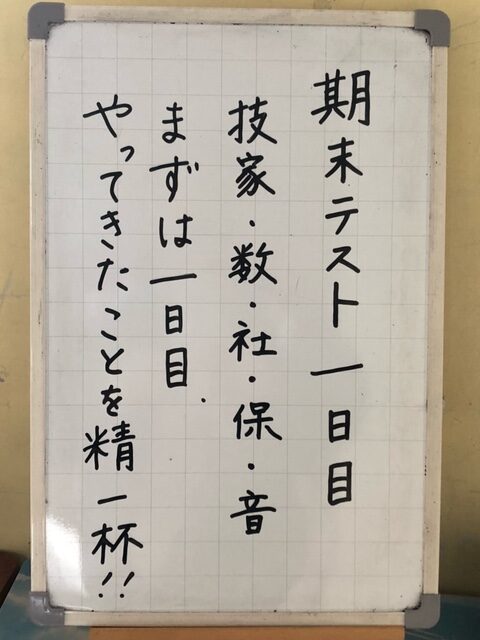 期末テスト一日目
技家・数・社・保・音
まずは一日目
やってきたことを精一杯!!